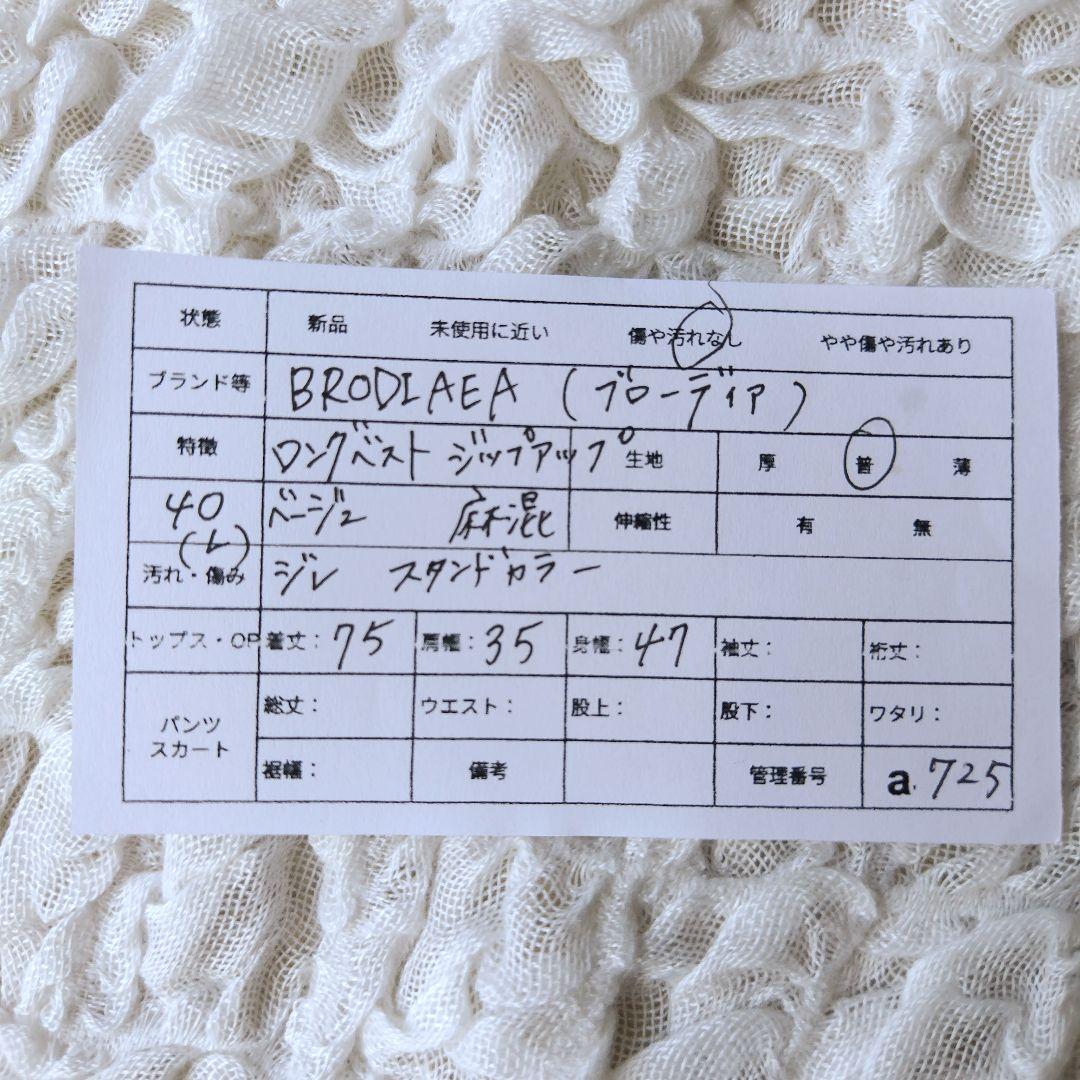 状態 新品 未使用に近い 傷や汚れなし やや傷や汚れあり
ブランド等 BRODIAEA (ブローディア)
特徴 ロングベスト ジップアップ 生地 厚 普 薄
40 ベージュ 麻混 伸縮性 有 無
(L)
汚れ・傷み ジレ スタンドカラー
トップス・OP 着丈: 75 肩幅: 35 身幅: 47 袖丈: 裄丈:
パンツ スカート 総丈: ウエスト: 股上: 股下: ワタリ:
裾幅: 備考 管理番号 a. 725